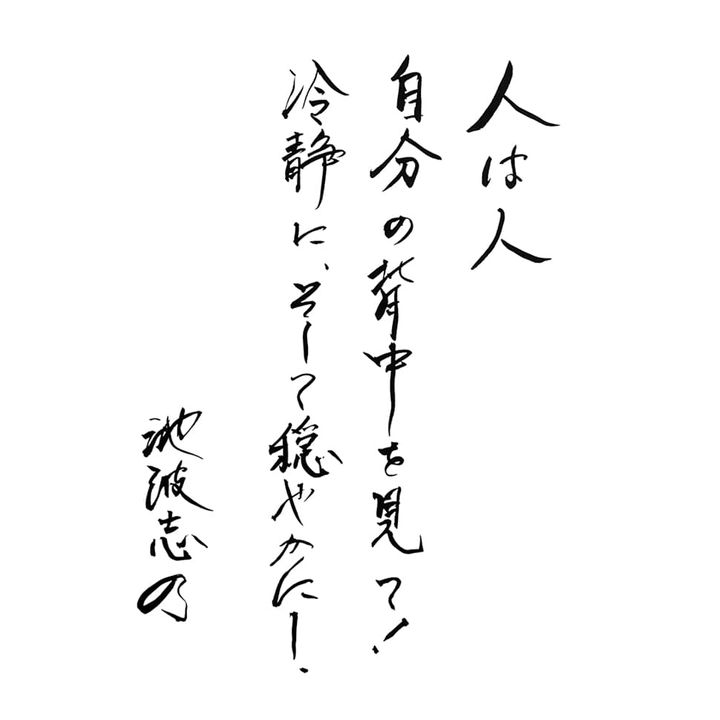 人は人
自分の背中を見て!
冷静に、そして穏やかに!
池波志乃